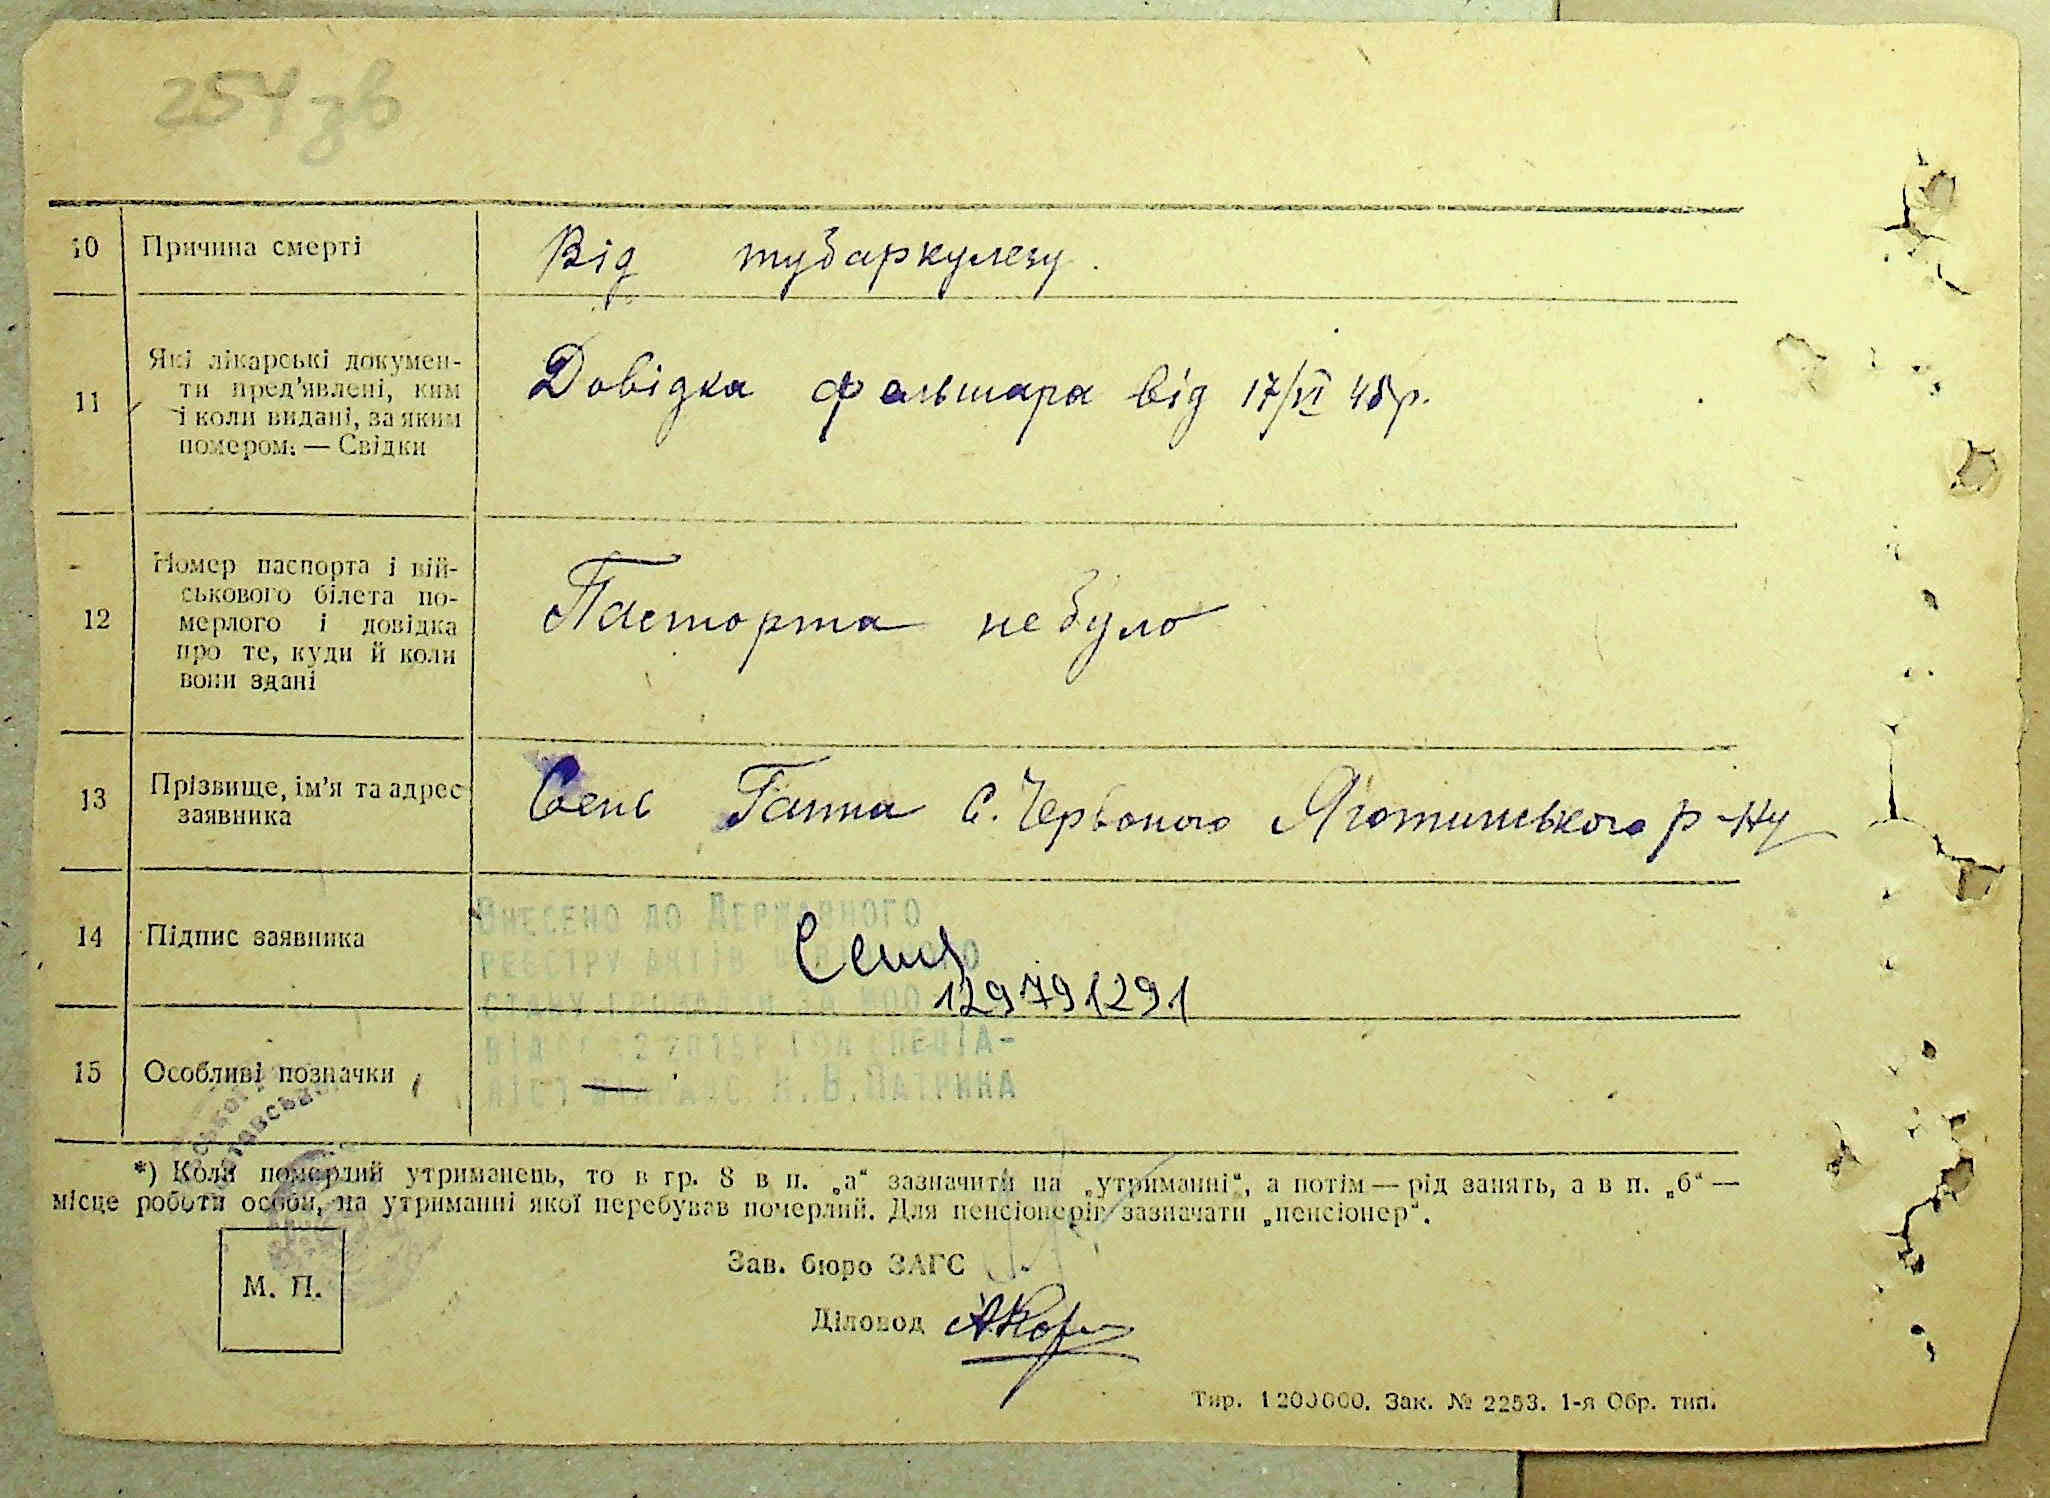 254 зв
10 Причина смерті Від тубаркулезу.
11 Які лікарські докумен-
ти пред'явлені, ким
і коли видані, за яким
номером. — Свідки
Довідка фельшара від 17/VI 48р.
12 Номер паспорта і вій-
ськового білета по-
мерлого і довідка
про те, куди й коли
вони здані
Паспорта не було
13 Прізвище, ім'я та адрес
заявника
Сень Ганна с. Червоного Яготинського р-ну
14 Підпис заявника
Внесено до Державного
реєстру актів
стану громадян за №00 129791291
15 Особливі позначки —
*) Коли померлий утриманець, то в гр. 8 в п. „а“ зазначити на „утриманні“, а потім — рід занять, а в п. „б“ —
місце роботи особи, на утриманні якої перебував померлий. Для пенсіонерів зазначати „пенсіонер“.
М. П.
Зав. бюро ЗАГС
Діловод
Тир. 1200000. Зак. № 2253. 1-я Обр. тип.